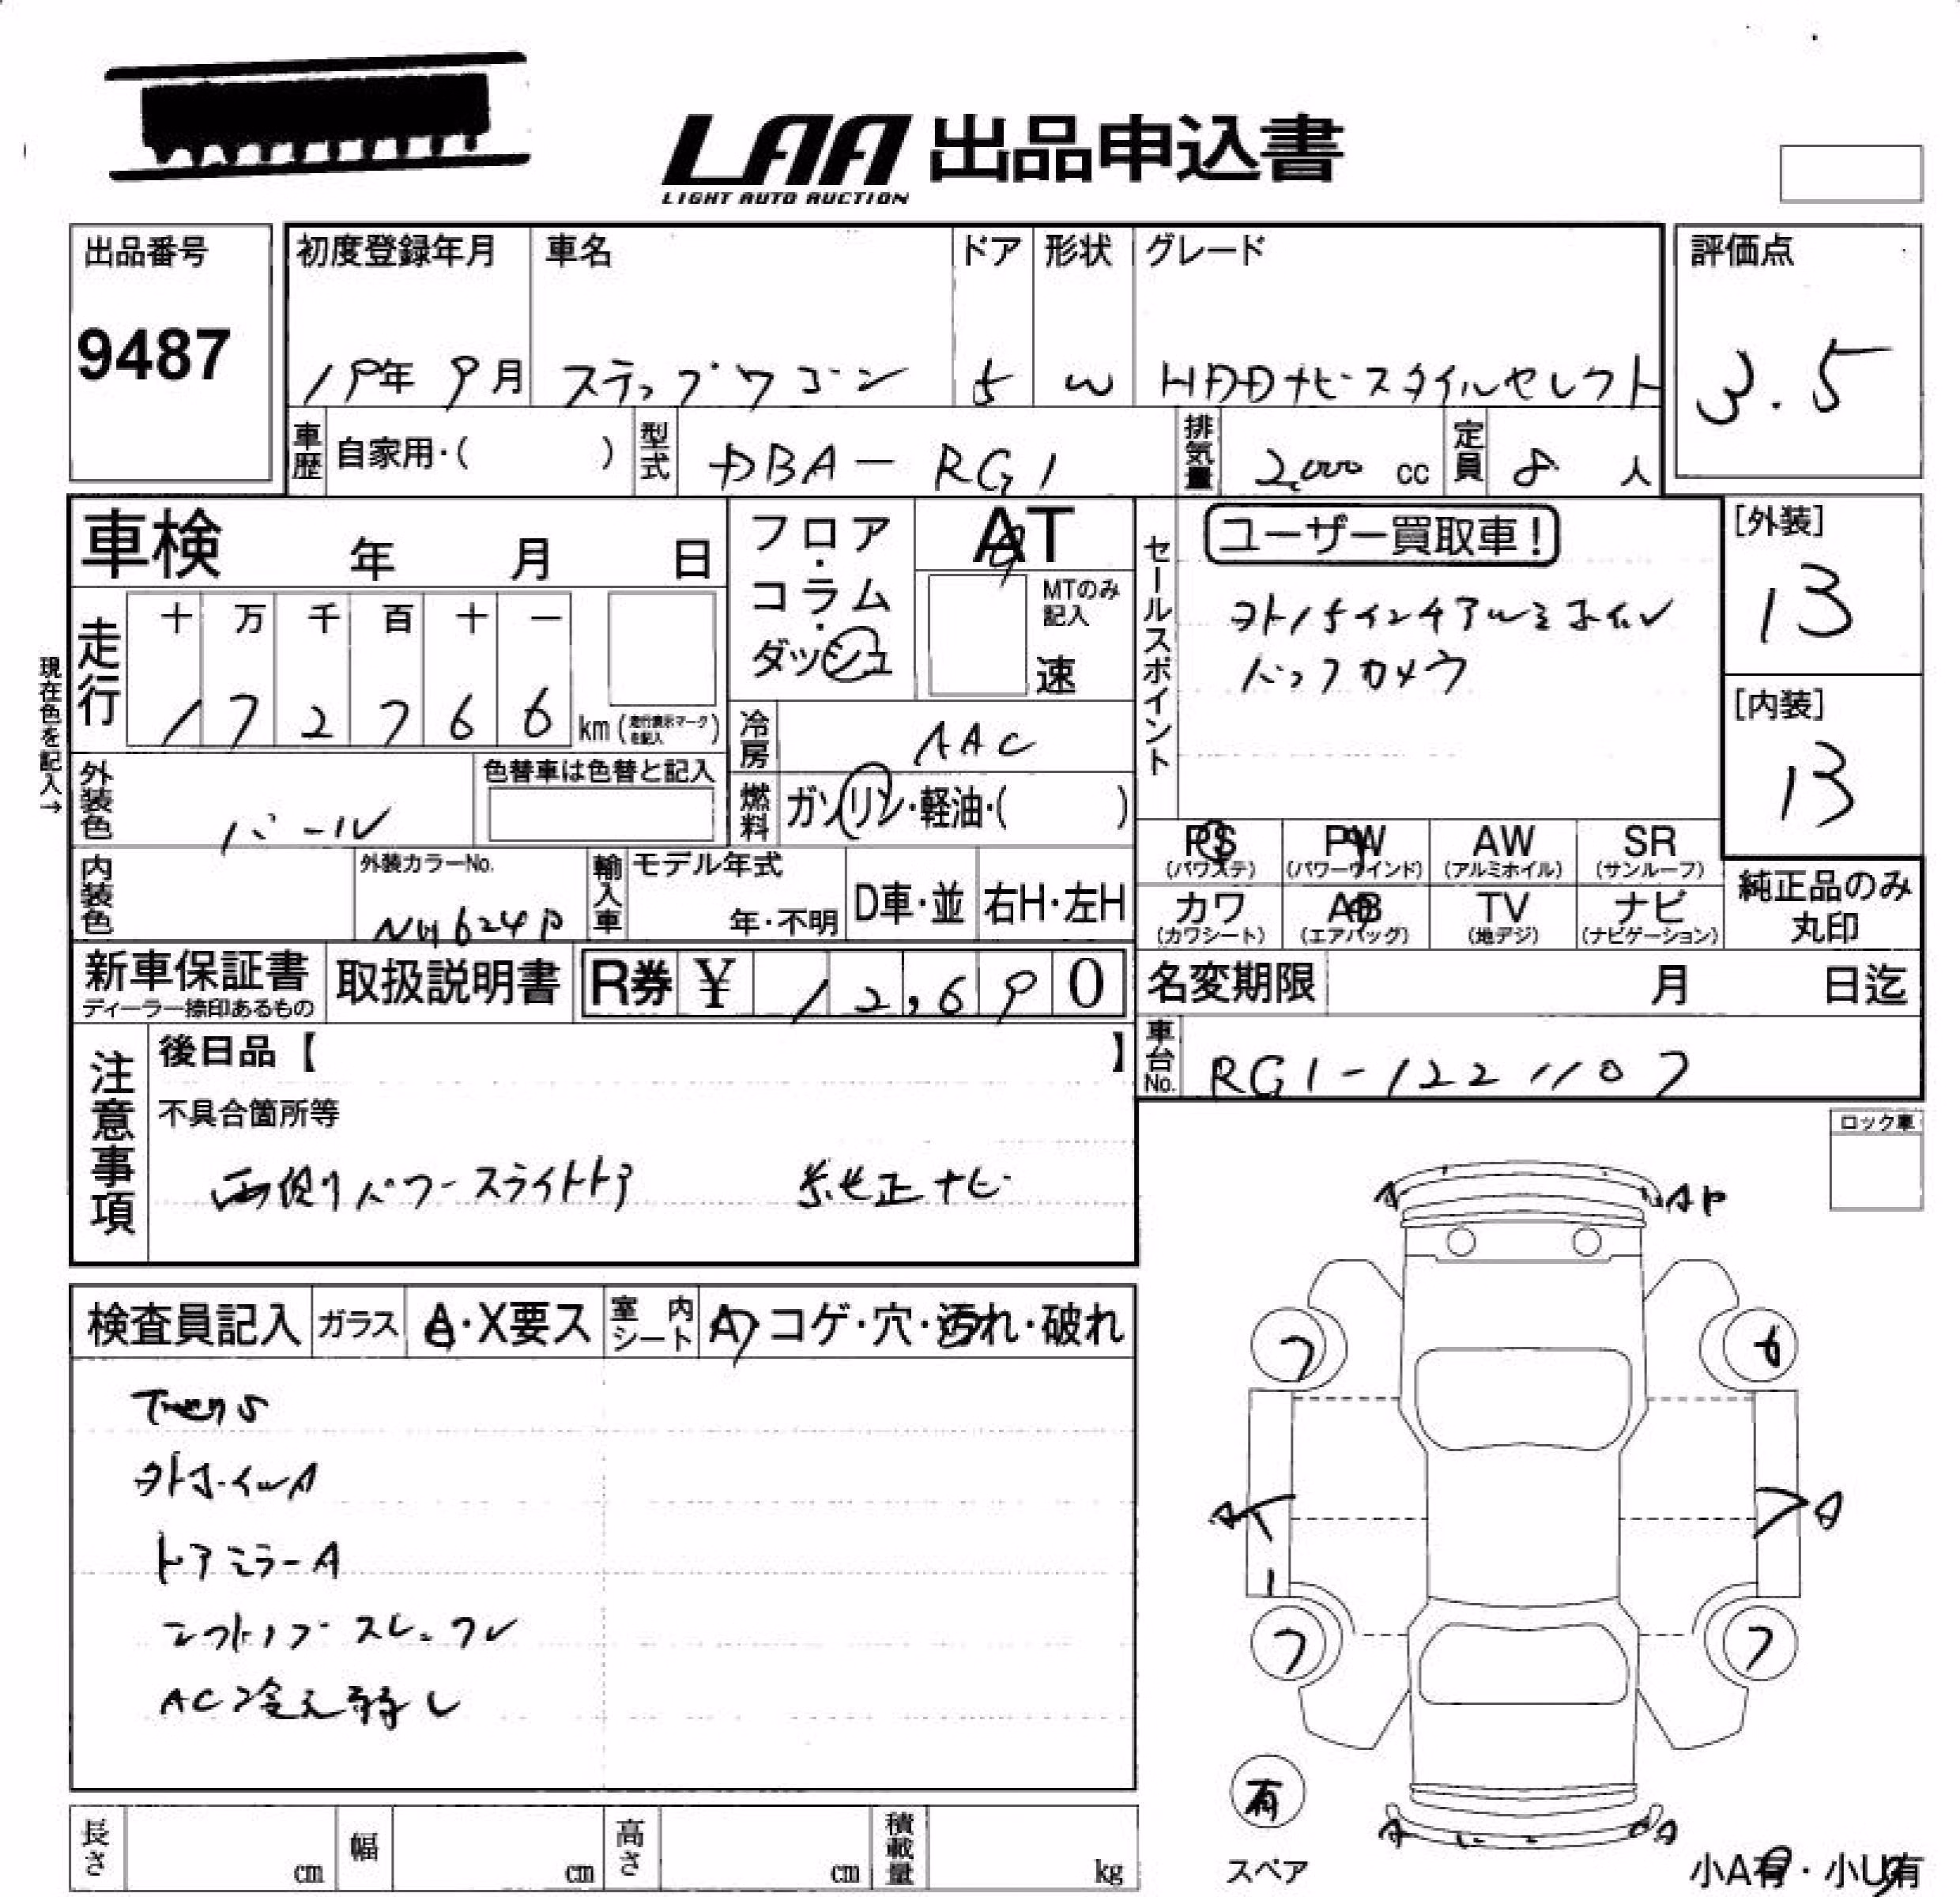 LAA 出品申込書
LIGHT AUTO AUCTION
出品番号
9487
初度登録年月
19年 9月
車名
ステップワゴン
ドア
5
形状
W
グレード
HDDナビスタイルセレクト
評価点
3.5
車歴
自家用・( )
型式
DBA-RG1
排気量
2,000 cc
定員
8 人
車検 年 月 日
走行
十 万 千 百 十 一
1 7 2 7 6 6 km (走行表示マークを記入)
現在色を記入→
フロア・コラム・ダッシュ
AT
MTのみ記入
速
冷房
AAC
燃料
ガソリン・軽油・( )
セールスポイント
ユーザー買取車!
外15インチアルミホイル
バックカメラ
[外装]
13
[内装]
13
外装色
パール
色替車は色替と記入
内装色
外装カラーNo.
NH624P
輸入車
モデル年式
年・不明
D車・並
右H・左H
PS (パワステ)
PW (パワーウインド)
AW (アルミホイル)
SR (サンルーフ)
カワ (カワシート)
AB (エアバッグ)
TV (地デジ)
ナビ (ナビゲーション)
純正品のみ丸印
新車保証書
ディーラー捺印あるもの
取扱説明書
R券 ¥ 12,690
名変期限 月 日迄
車台No.
RG1-1221107
注意事項
後日品【 】
不具合箇所等
両側パワースライドドア 純正ナビ
ロック車
検査員記入
ガラス
A・X要ス
室内シート
A・コゲ・穴・汚れ・破れ
外ホイルA
ドアミラーA
AC冷え弱し
A
AP
7
6
A
A
7
7
有
スペア
A
A
小A有・小U有
長さ cm
幅 cm
高さ cm
積載量 kg